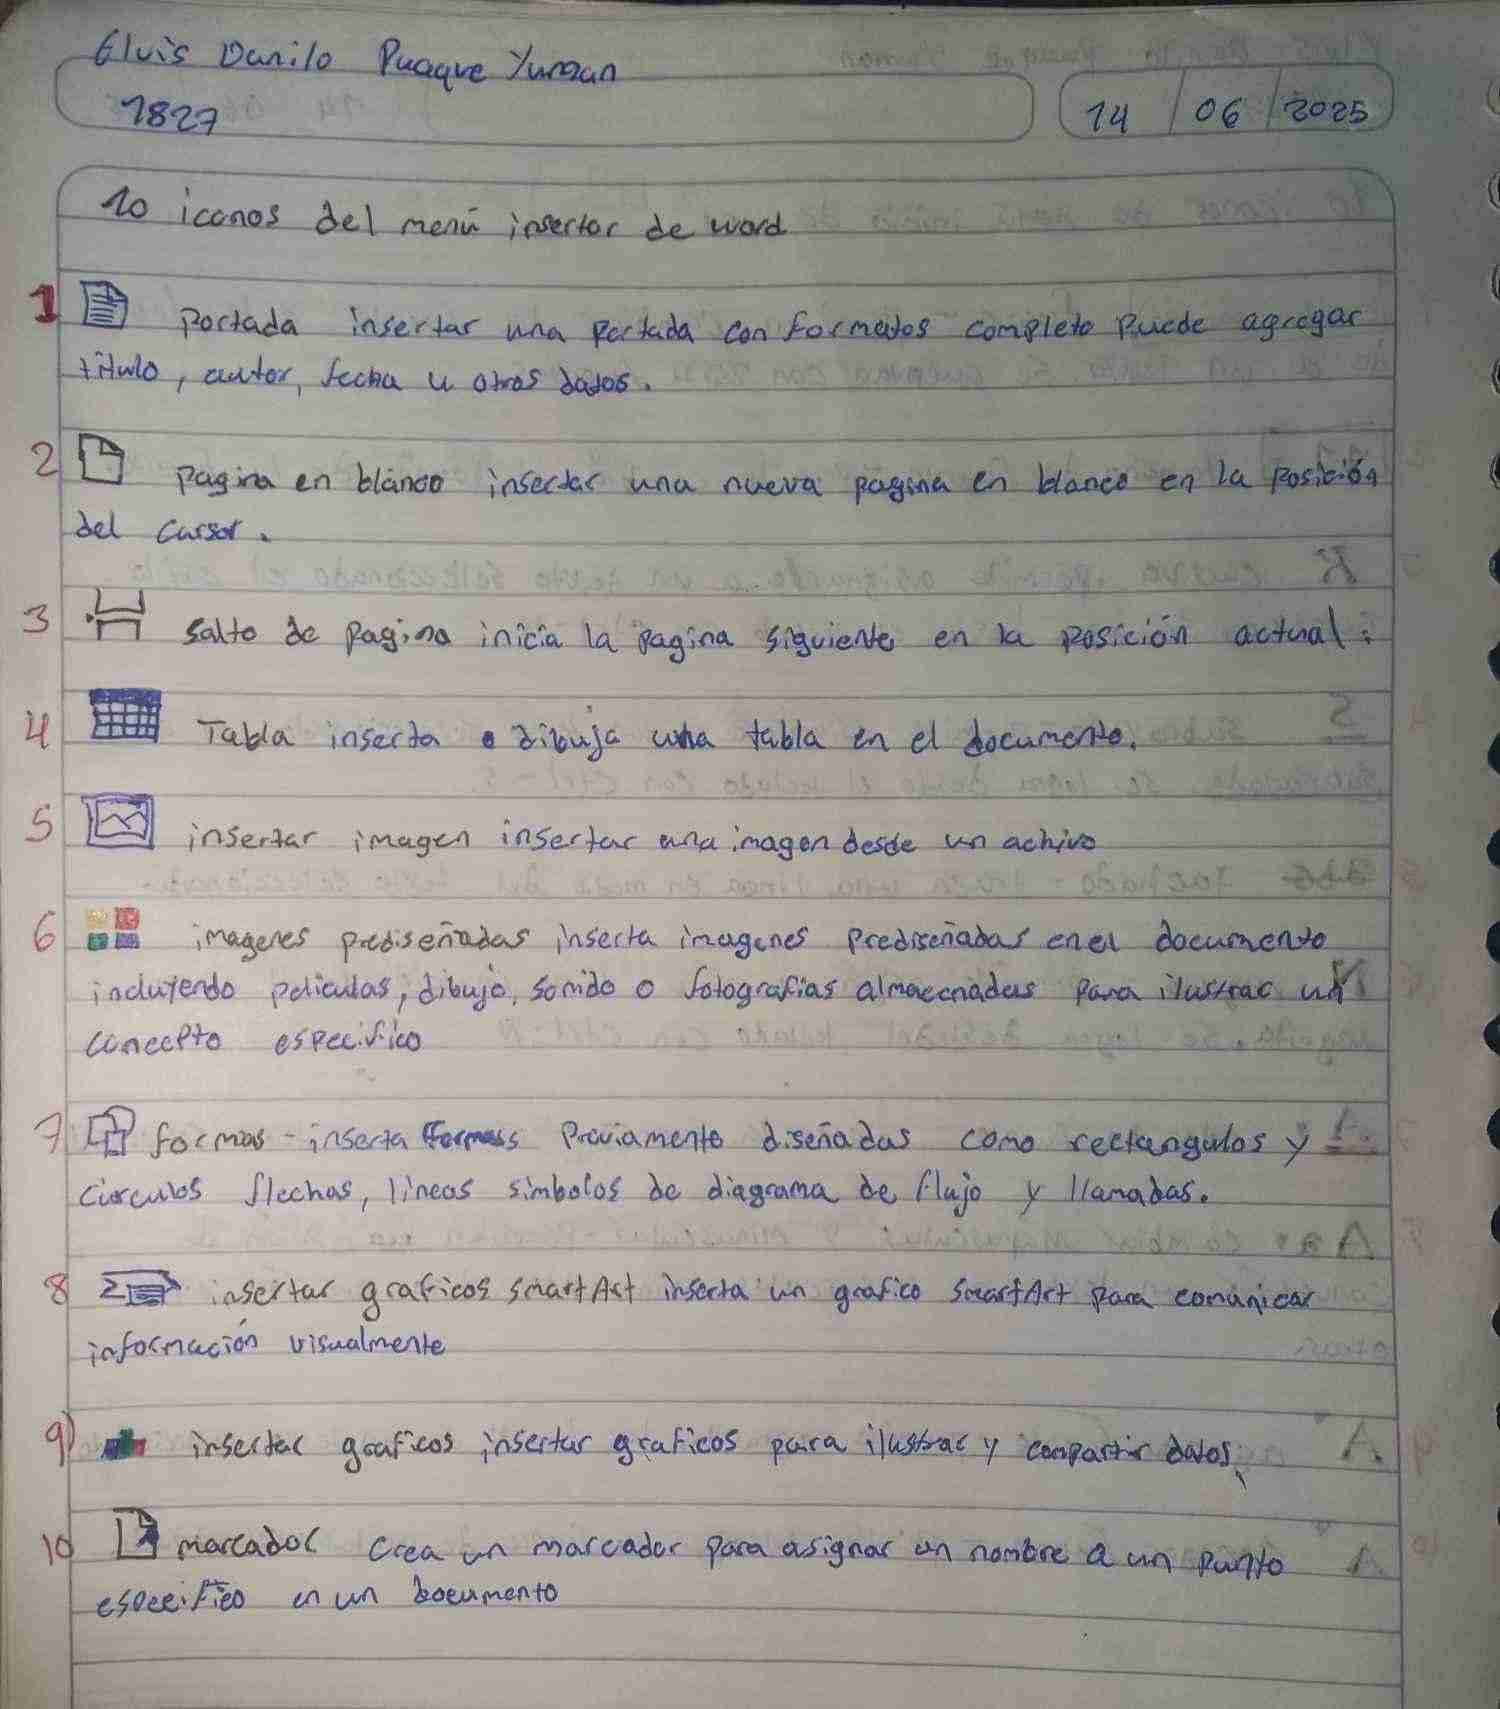 Elvis Danilo Puaque Yuman
1827
14 / 06 / 2025
10 iconos del menú insertar de word
1 Portada insertar una Portada con formatos completo Puede agregar
título, autor, fecha u otros datos.
2 Pagina en blanco insertar una nueva pagina en blanco en la Posición
del cursor.
3 Salto de Pagina inicia la pagina siguiente en la Posición actual.
4 Tabla inserta o dibuja una tabla en el documento.
5 insertar imagen insertar una imagen desde un achivo
6 imagenes prediseñadas inserta imagenes Prediseñadas en el documento
incluyendo peliculas, dibujo, sonido o fotografias almacenadas para ilustrar un
concepto especifico
7 formas - inserta formas Previamente diseñadas como rectangulos y
circulos flechas, lineas simbolos de diagrama de flujo y llamadas.
8 insertar graficos smartArt inserta un grafico SmartArt para comunicar
información visualmente
9) insertar graficos insertar graficos para ilustrar y compartir datos.
10 marcador crea un marcador para asignar un nombre a un Punto
especifico en un documento